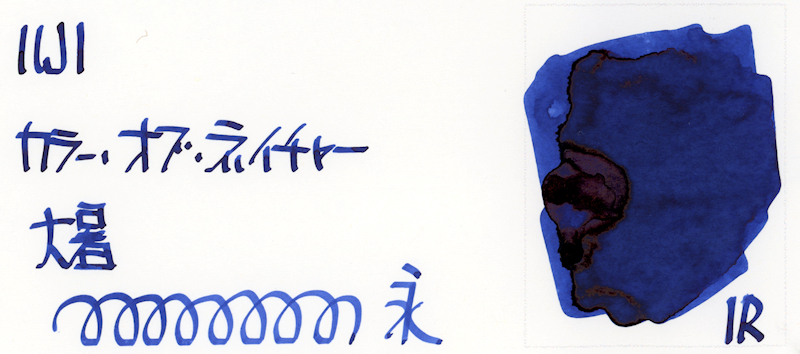 IWI
カラー・オブ・ネイチャー
大暑
永
IR